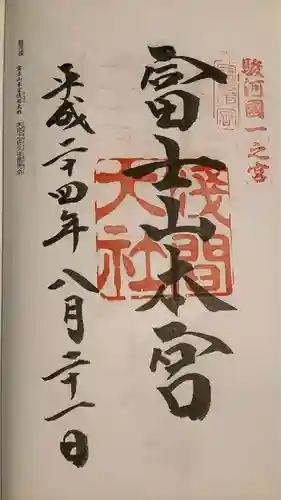 駿河國一之宮
富士山本宮
浅間大社
平成二十四年八月二十一日